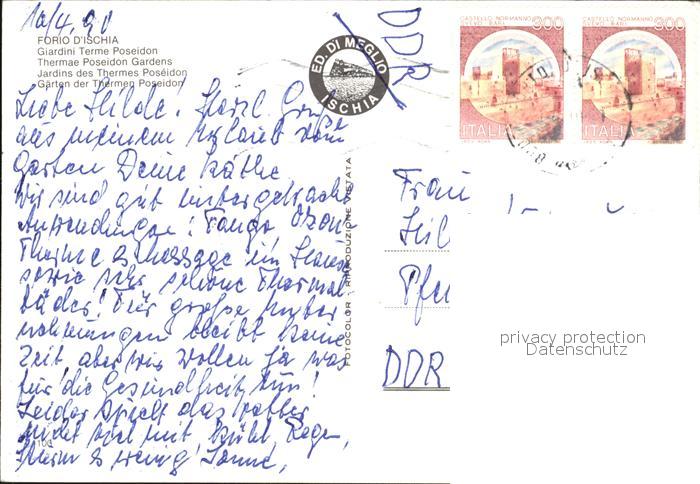 10/4.90
FORIO D'ISCHIA
Giardini Terme Poseidon
Thermae Poseidon Gardens
Jardins des Thermes Poséidon
Gärten der Thermen Poseidon
Liebe Hilde! Herzl. Grüße
aus meinem Urlaub vom
Garten Deine Käthe
Wir sind gut untergebracht
Anwendungen: Fango, Ozon
Therme & Massage im Hause
sowie sehr schöne Thermal
bäder! Für große Unter
nehmungen bleibt keine
Zeit aber wir wollen ja was
für die Gesundheit tun!
Leider spielt das Wetter
nicht viel mit kühl, Regen,
Sturm & wenig Sonne,
ED. DI MEGLIO
ISCHIA
DDR
FOTOCOLOR - RIPRODUZIONE VIETATA
CASTELLO NORMANNO
SVEVO - BARI
300
ITALIA
CASTELLO NORMANNO
SVEVO - BARI
300
ITALIA
Frau
DDR
privacy protection
Datenschutz